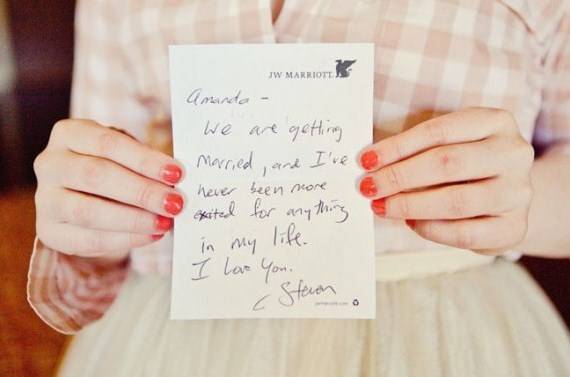 JW MARRIOTT
Amanda -
We are getting
Married, and I've
never been more
exited for anything
in my life.
I Love You.
Steven